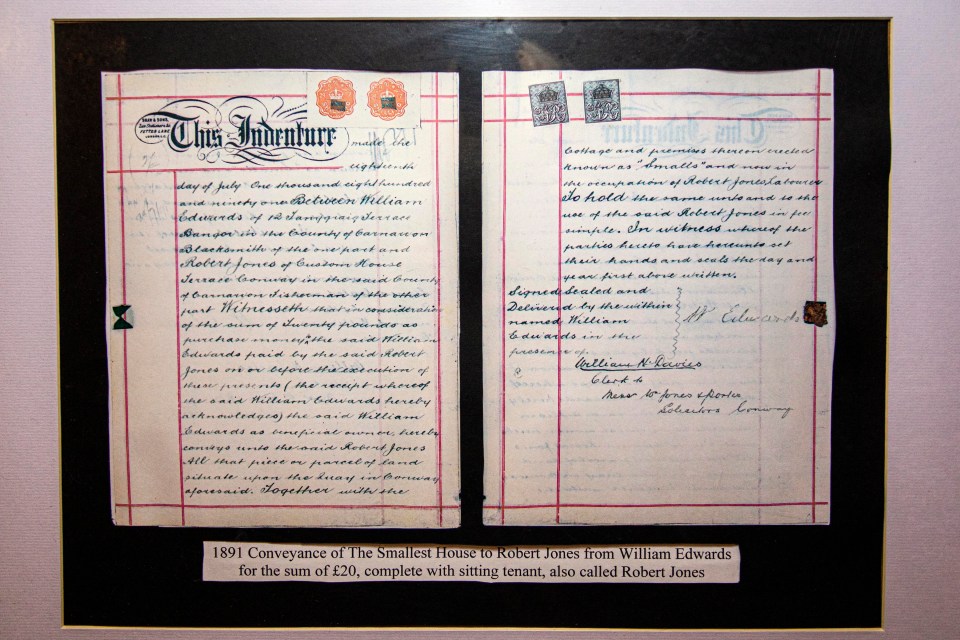 This Indenture made the
eighteenth
day of July One thousand eight hundred
and ninety one Between William
Edwards of 12 Terrace
Bangor in the County of Carnarvon
Blacksmith of the one part and
Robert Jones of Custom House
Terrace Conway in the said County
of Carnarvon Fisherman of the other
part Witnesseth that in consideration
of the sum of Twenty pounds as
purchase money the said William
Edwards paid by the said Robert
Jones on or before the execution of
these presents (the receipt whereof
the said William Edwards hereby
acknowledges) the said William
Edwards as beneficial owner hereby
conveys unto the said Robert Jones
All that piece or parcel of land
situate upon the Quay in Conway
aforesaid. Together with the
Cottage and premises thereon erected
known as "Smalls" and now in
the occupation of Robert Jones Labourer
To hold the same unto and to the
use of the said Robert Jones in fee
simple. In witness whereof the
parties hereto have hereunto set
their hands and seals the day and
year first above written.
Signed Sealed and
Delivered by the within
named William
Edwards in the
presence of
W Edwards
William H Davies
Clerk to
Messrs Jones & Porter
Solicitors Conway
1891 Conveyance of The Smallest House to Robert Jones from William Edwards
for the sum of £20, complete with sitting tenant, also called Robert Jones